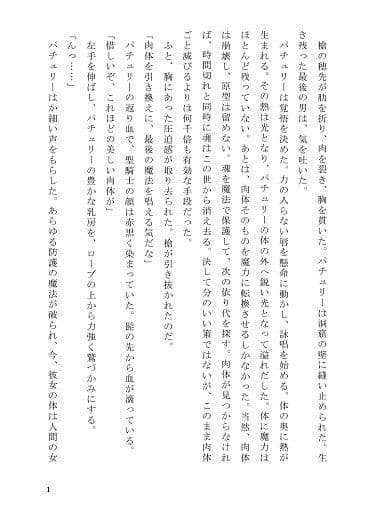 槍の穂先が肋を折り、肉を裂き、胸を貫いた。パチュリーは洞窟の壁に縫い止められた。生
き残った最後の男は、気を吐いた。
パチュリーは覚悟を決めた。力の入らない唇を懸命に動かし、詠唱を始める。体の奥に熱が
生まれる。その熱は光となり、パチュリーの体の外へ鋭い光となって溢れだした。体に魔力は
ほとんど残っていない。あとは、肉体そのものを魔力に転換させるしかなかった。当然、肉体
は崩壊し、原型は留めない。魂を魔法で保護して、次の依り代を探す。肉体が見つからなけれ
ば、時間切れと同時に魂はこの世から消え去る。決して分のいい策ではないが、このまま肉体
ごと滅びるよりは何千倍も有効な手段だった。
ふと、胸にあった圧迫感が取り去られた。槍が引き抜かれたのだ。
「肉体を引き換えに、最後の魔法を唱える気だな」
パチュリーの返り血で、聖騎士の顔は赤黒く染まっていた。髭の先から血が滴っている。
「惜しいぞ、これほどの美しい肉体が」
左手を伸ばし、パチュリーの豊かな乳房を、ローブの上から力強く鷲づかみにする。
「んっ……」
パチュリーはか細い声をもらした。あらゆる防護の魔法が破られ、今、彼女の体は人間の女
1